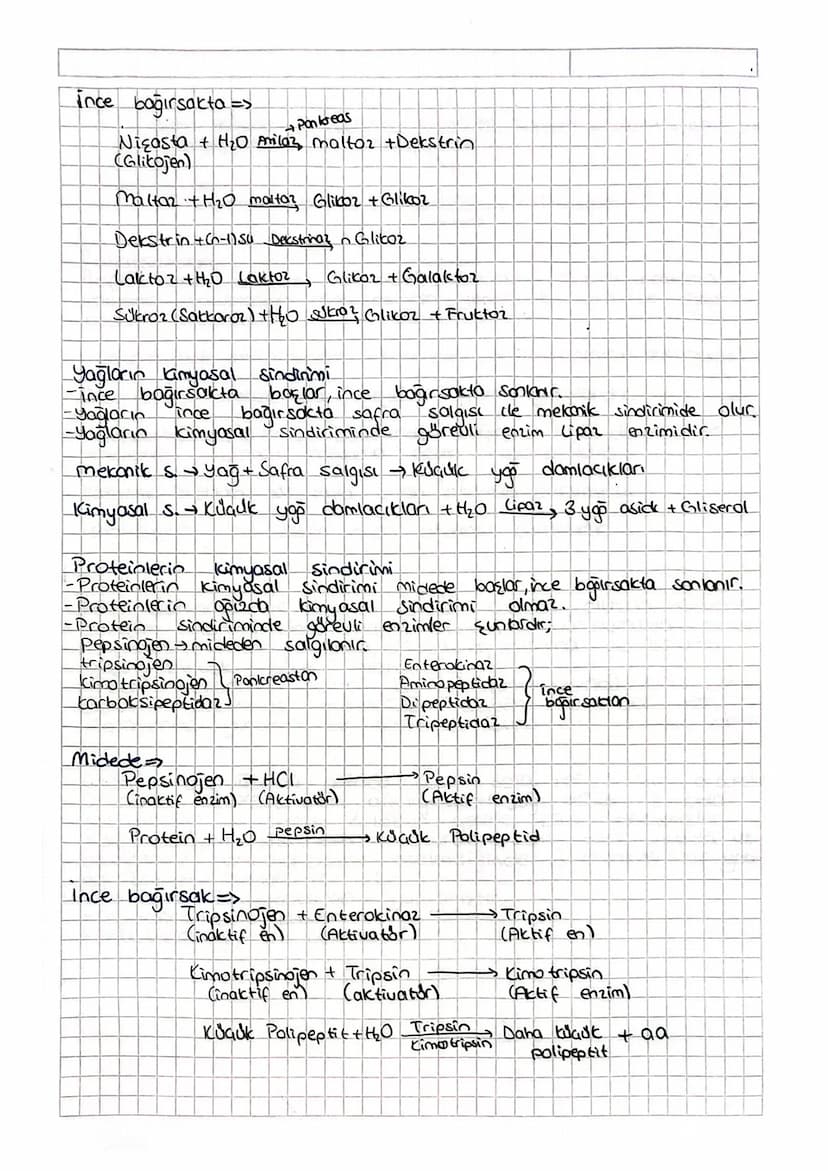 İnce bağırsakta =>
→ Pankreas
Nişasta + H₂O Amilaz, maltoz + Dekstrin
(Glikojen)
Maltoz + H₂O maltaz, Glikoz + Glikoz
Dekstrin + (n-1) su Dekstrinaz, n Glikoz
Laktoz + H₂O Laktoz, Glikoz + Galaktoz
Sükroz (Sakkaroz) + H₂O sükraz, Glikoz + Fruktoz
Yağların kimyasal sindirimi
- ince bağırsakta başlar, ince bağırsakta sonlanır.
- Yağların ince bağırsakta safra salgısı ile mekanik sindirimide olur.
- Yağların kimyasal sindiriminde görevli enzim Lipaz enzimidir.
mekanik s. → Yağ + Safra salgısı → Küçük yağ damlacıkları
Kimyasal s. → Küçük yağ damlacıkları + H₂O Lipaz, 3 yağ asidi + Gliserol
Proteinlerin kimyasal sindirimi
- Proteinlerin kimyasal sindirimi midede başlar, ince bağırsakta sonlanır.
- Proteinlerin ağızda kimyasal sindirimi olmaz.
- Protein sindiriminde görevli enzimler şunlardır;
Pepsinojen → mideden salgılanır.
tripsinojen
kimotripsinojen } Pankreastan
karboksipeptidaz
Enterokinaz
Aminopeptidaz
Dipeptidaz
Tripeptidaz } ince bağırsaktan
Midede =>
Pepsinojen + HCl → Pepsin
(inaktif enzim) (Aktivatör) (Aktif enzim)
Protein + H₂O pepsin → Küçük Polipeptid
İnce bağırsak =>
Tripsinojen + Enterokinaz → Tripsin
(inaktif en) (Aktivatör) (Aktif en)
Kimotripsinojen + Tripsin → Kimotripsin
(inaktif en) (aktivatör) (Aktif enzim)
Küçük Polipeptit + H₂O Tripsin → Daha küçük + aa
Kimotripsin polipeptit